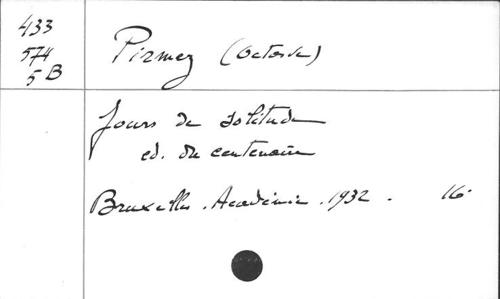 433
574
5 B
Pirmez (Octave)
Jours de solitude
ed. du centenaire
Bruxelles. Académie. 1932. 16°